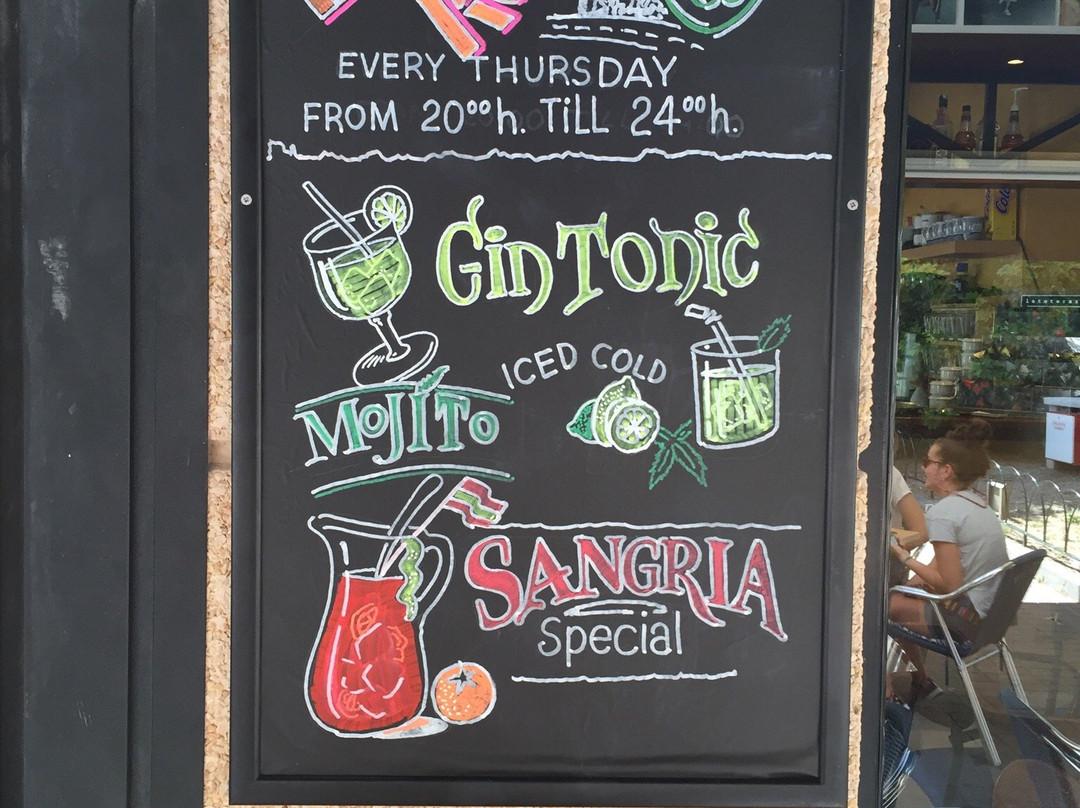 EVERY THURSDAY
FROM 20⁰⁰h. TiLL 24⁰⁰h.
Gin Tonic
ICED COLD
MOJÍTO
SANGRIA
Special